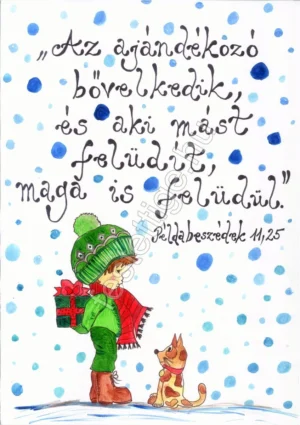 „Az ajándékozó
bővelkedik,
és aki mást
felüdít,
maga is felüdül.”
Példabeszédek 11,25